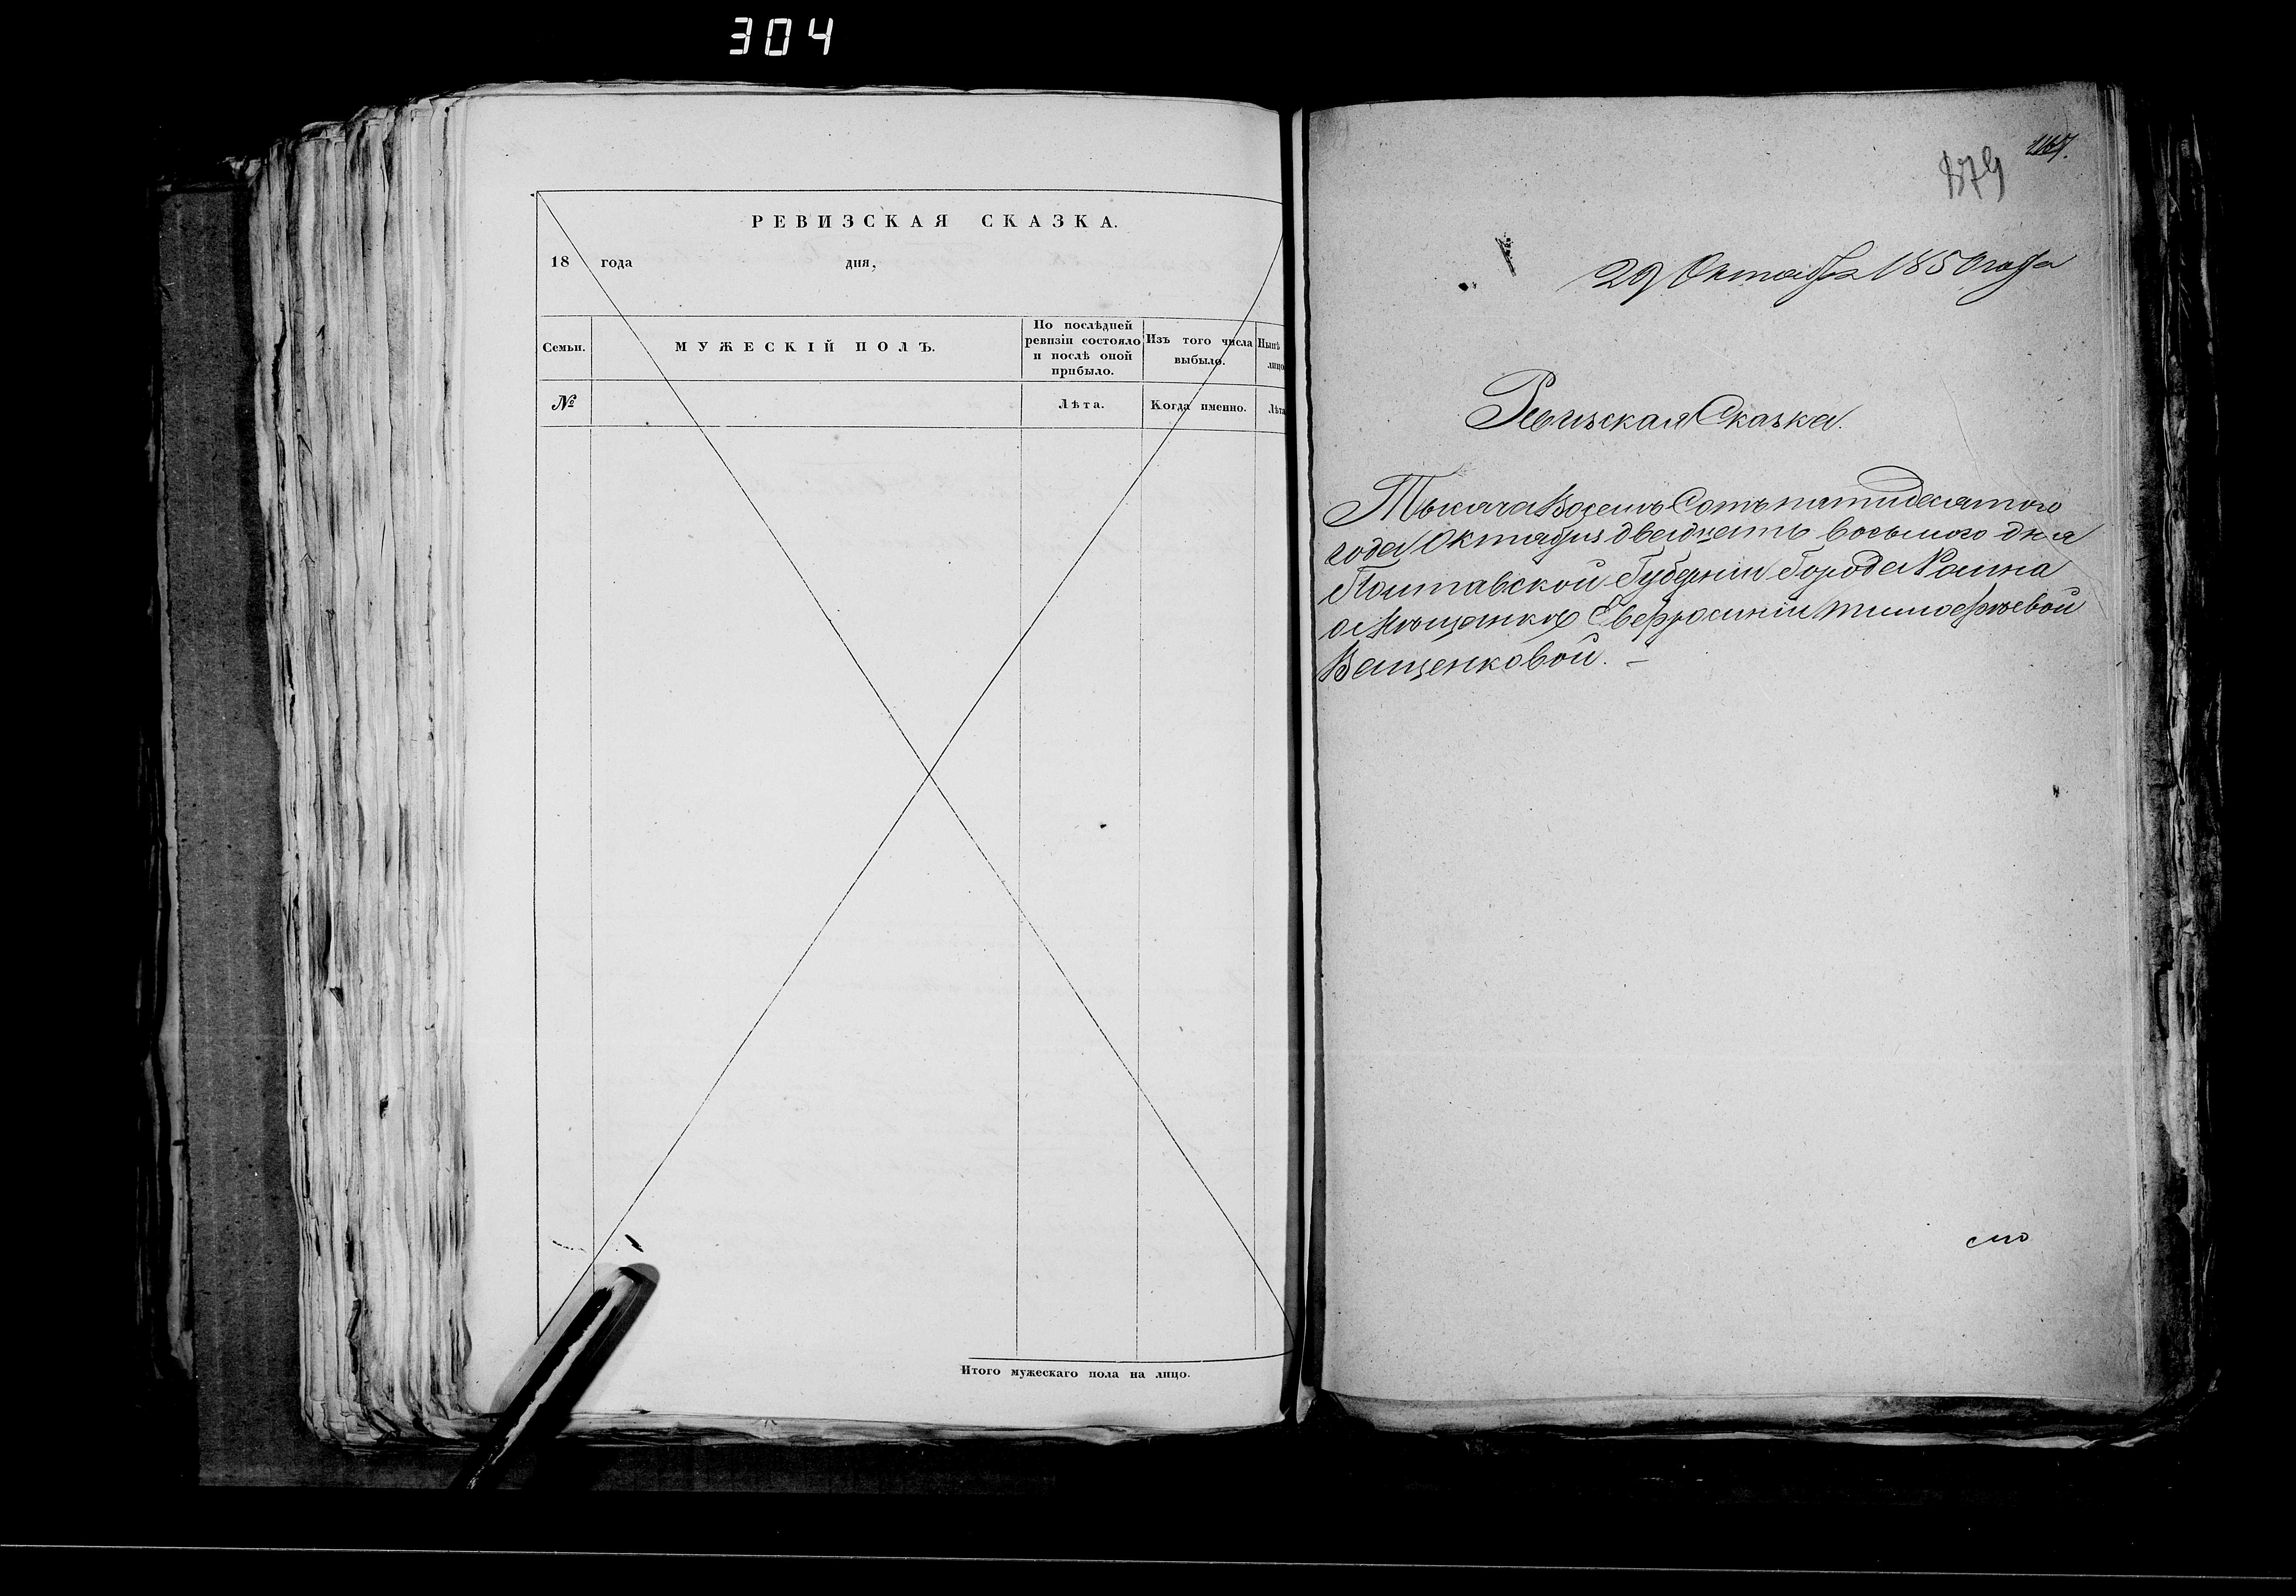 304
РЕВИЗСКАЯ СКАЗКА.
18 года дня,
Семьи.
МУЖЕСКІЙ ПОЛЪ.
По послѣдней
ревизіи состояло
и послѣ оной
прибыло.
Изъ того числа
выбыло.
Нынѣ
лицо
№
Лѣта.
Когда именно.
Лѣта
Итого мужескаго пола на лицо.
879
29 Октября 1850 года
Ревизская Сказка.
Тысяча Восемь Сотъ пятидесятого
года Октября двадцать восьмого дня
Полтавской Губерніи Города Ромна
о Мѣщанкѣ Евфросиніи Тимофѣевой
Ващенковой. –